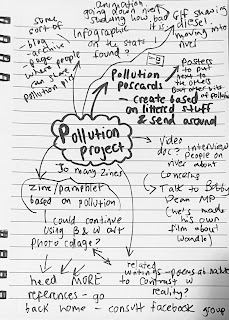 some
sort of
- blog
- archive
page people
where people
can share
pollution pics
animation
going down river
studying how bad
it is
Infographic
on the stats
found?
GIF sharing
diesel
moving into
river
Pollution
postcards
- create based
on littered stuff
& send around
posters to
put next
to the others
about other sites
of pollution
Pollution
project
video
doc? interview
people on
river about
concerns
→ Talk to Bobby
Dean MP
(he's made
his own
film about
Wandle)
So many zines
zine/pamphlet
based on pollution
→ could continue
using B & W alt
photo colage?
→ related
writings - poems
to contrast w
reality?
need MORE
references - go
back home - consult facebook group